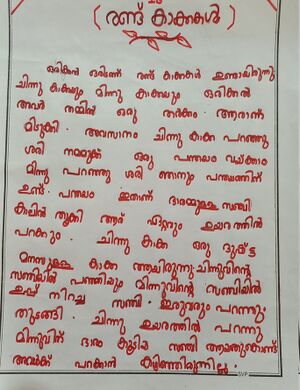 (രണ്ട് കാക്കകൾ)
ഒരിക്കൽ ഒരിടത്ത് രണ്ട് കാക്കകൾ ഉണ്ടായിരുന്നു
ചിന്നു കാക്കയും മിന്നു കാക്കയും ഒരിക്കൽ
അവർ തമ്മിൽ ഒരു തർക്കം. ആരാണ്
മിടുക്കി. അവസാനം ചിന്നു കാക്ക പറഞ്ഞു
ശരി നമ്മുക്ക് ഒരു പന്തലം വയ്ക്കാം
മിന്നു പറഞ്ഞു ശരി ഞാനും പന്തയത്തിന്
ഉണ്ട്. പന്തലം ഇതാണ് ഭാരമുള്ള സഞ്ചി
കാലിൽ തൂക്കി ആര് ഏറ്റവും ഉയരത്തിൽ
പറക്കും. ചിന്നു കാക്ക ഒരു ദുഷ്ട്ട
മനസുള്ള കാക്ക ആയിരുന്നു. ചിന്നുവിന്റെ
സഞ്ചിയിൽ പഞ്ഞിയും മിന്നുവിന്റെ സഞ്ചിയിൽ
ഉപ്പ് നിറച്ച സഞ്ചി. ഇരുവരും പറന്നു.
തുടങ്ങി. ചിന്നു ഉയരത്തിൽ പറന്നു
മിന്നുവിന് ഭാരം കൂടിയ സഞ്ചി ആയതുകൊണ്ട്
അവൾക്ക് പറക്കാൻ കഴിഞ്ഞിരുന്നില്ല.
SVP